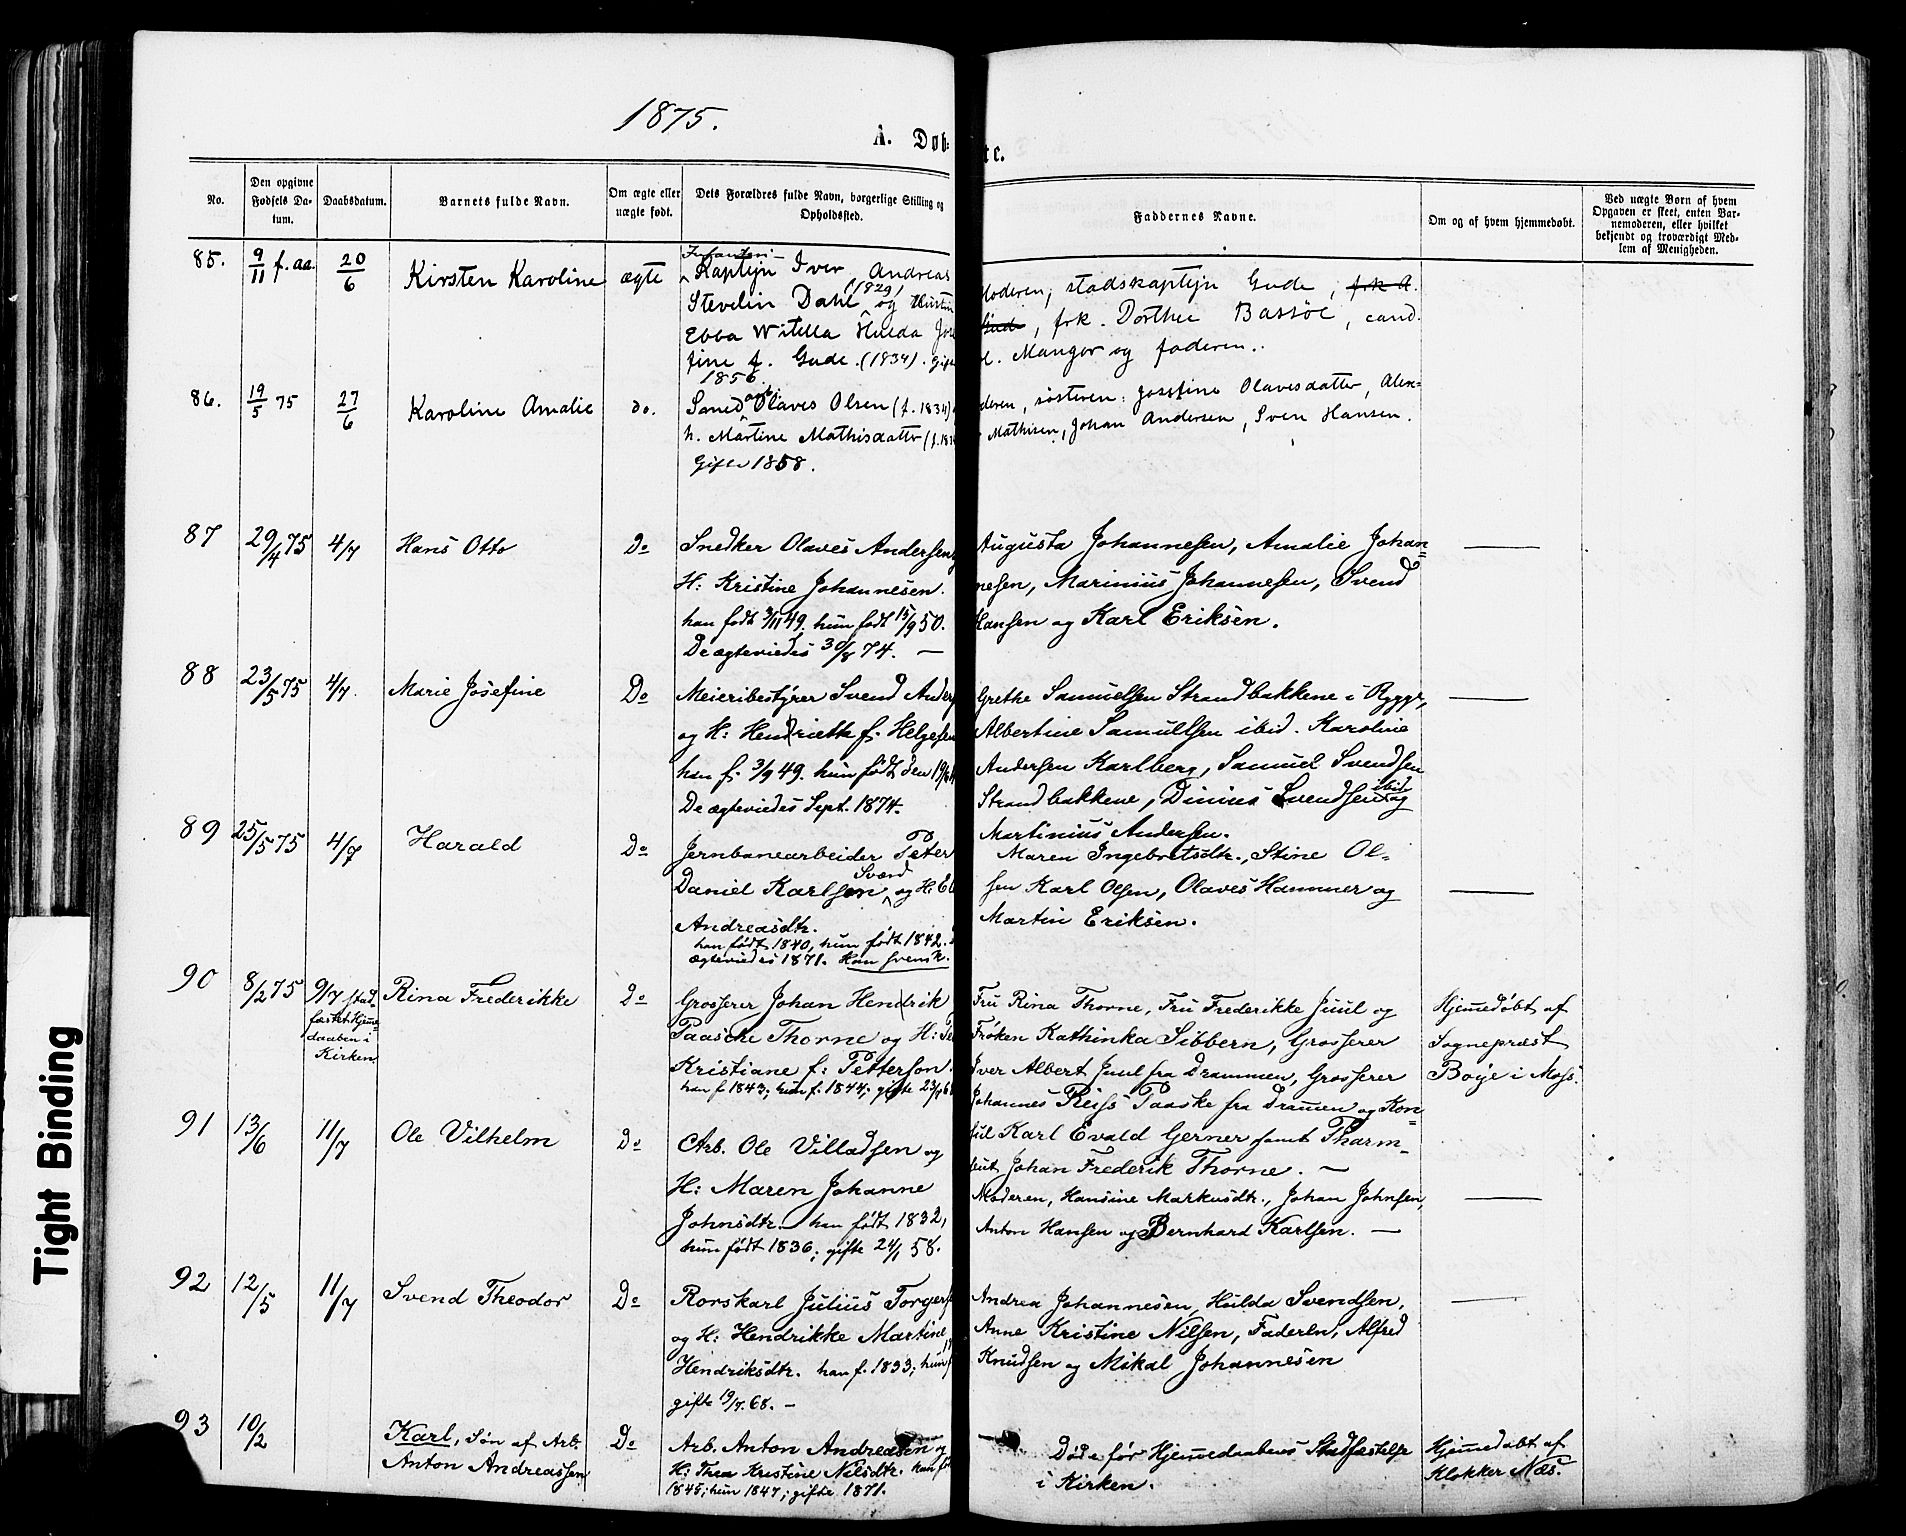 1875.
A. Døb-
te.
No.
Den opgivne Fødsels Da-
tum.
Daabsdatum.
Barnets fulde Navn.
Om ægte eller
uægte født.
Dets Forældres fulde Navn, borgerlige Stilling og
Opholdssted.
Faddernes Navne.
Om og af hvem hjemmedøbt.
Ved uægte Børn af hvem
Opgaven er skeet, enten Bar-
nemoderen, eller hvilket
bekjendt og troværdigt Med-
lem af Menigheden.
85. 9/11 f. aa. 20/6 Kirsten Karoline ægte
Infanteri-
Kaptejn Iver Andreas
(1829)
Stevelin Dahl og Hustru
Ebba Witella Hulda Jose
fine f. Gude. (1834). gift
1856.
Moderen, stadskaptejn Gude, frk A.
Gude, frk. Dorthee Bassøe, cand.
Mangor og faderen.
86. 19/5 75 27/6 Karoline Amalie do.
arb.
Smed Olaves Olsen (f. 1834)
h. Martine Mathisdatter (f. 18
Gifte 1858.
deren, søsteren: Josefine Olavesdatter, Alen-
Mathisen, Johan Andersen, Sven Hansen.
87 29/4 75 4/7 Hans Otto Do
Snedker Olaves Andersen
H: Kristine Johannesen.
han født 3/11 49. hun født 15/9 50.
De ægteviedes 30/8 74. —
Augusta Johannesen, Amalie Johan=
nesen, Marinius Johannesen, Svend
Hansen og Karl Eriksen.
88 23/5 75 4/7. Marie Josefine Do
Meieribestyrer Svend Anders
og H: Hendriette f. Helgesen
han f. 3/9 49. hun født den 19/
De ægteviedes Sept. 1874.
Grethe Samuelsen Strandbakkene i Rygge,
Albertine Samuelsen ibid. Karoline
Andersen Karlberg, Samuel Svendsen
ibid
Strandbakkene, Dinius Svendsen og
Martinius Andersen.
89 25/5 75 4/7 Harald Do
Jernbanearbeider Peter
Sværd
Daniel Karlsen og H: El
Andreasdtr.
han født 1840, hun født 1842.
ægteviedes 1871. Han svensk.
Maren Ingebretsdtr., Stine Ol-
sen Karl Olsen, Olaves Hammer og
Martin Eriksen.
90 8/2 75 9/7 stad-
fæstet Hjem
daaben i
Kirken
Rina Frederikke Do
Grosserer Johan Hendrik
Paasche Thorne og H:
Kristiane f: Petterson.
han f 1843; hun f. 1844; gifte 23/
Fru Rina Thorne, Fru Frederikke Juul og
Frøken Kathinka Sibbern, Grosserer
Iver Albert Juul fra Drammen, Grosserer
Johannes Reiss Paaske fra Drammen og Kon=
sul Karl Evald Gerner samt Pharm=
ceut Johan Frederik Thorne. —
Hjemmedøbt af
Sognepræst
Boye i Moss.
91 13/6 11/7 Ole Vilhelm Do
Arb. Ole Villadsen og
H: Maren Johanne
Johnsdtr. han født 1832,
hun født 1836; gifte 24/1 58.
Moderen, Hansine Markusdtr., Johan Johnsen,
Anton Hansen og Bernhard Karlsen. —
92 12/5 11/7 Svend Theodor Do
Rorskarl Julius Torgers
og H: Hendrikke Martine
Hendriksdtr. han f. 1833; hun f
gifte 19/7. 68. —
Andrea Johannesen, Hulda Svendsen,
Anne Kristine Nilsen, Faderen, Alfred
Knudsen og Mikal Johannesen
93 10/2 Karl, Søn af Arb.
Anton Andreassen
Do
Arb. Anton Andreasen og
H: Thea Kristine Nilsdtr. han fø
1845; hun 1847; gifte 1871.
Døde før Hjemmedaabens Stadfæstelse
i Kirken.
Hjemmedøbt af
Klokker Næs.
Tight Binding